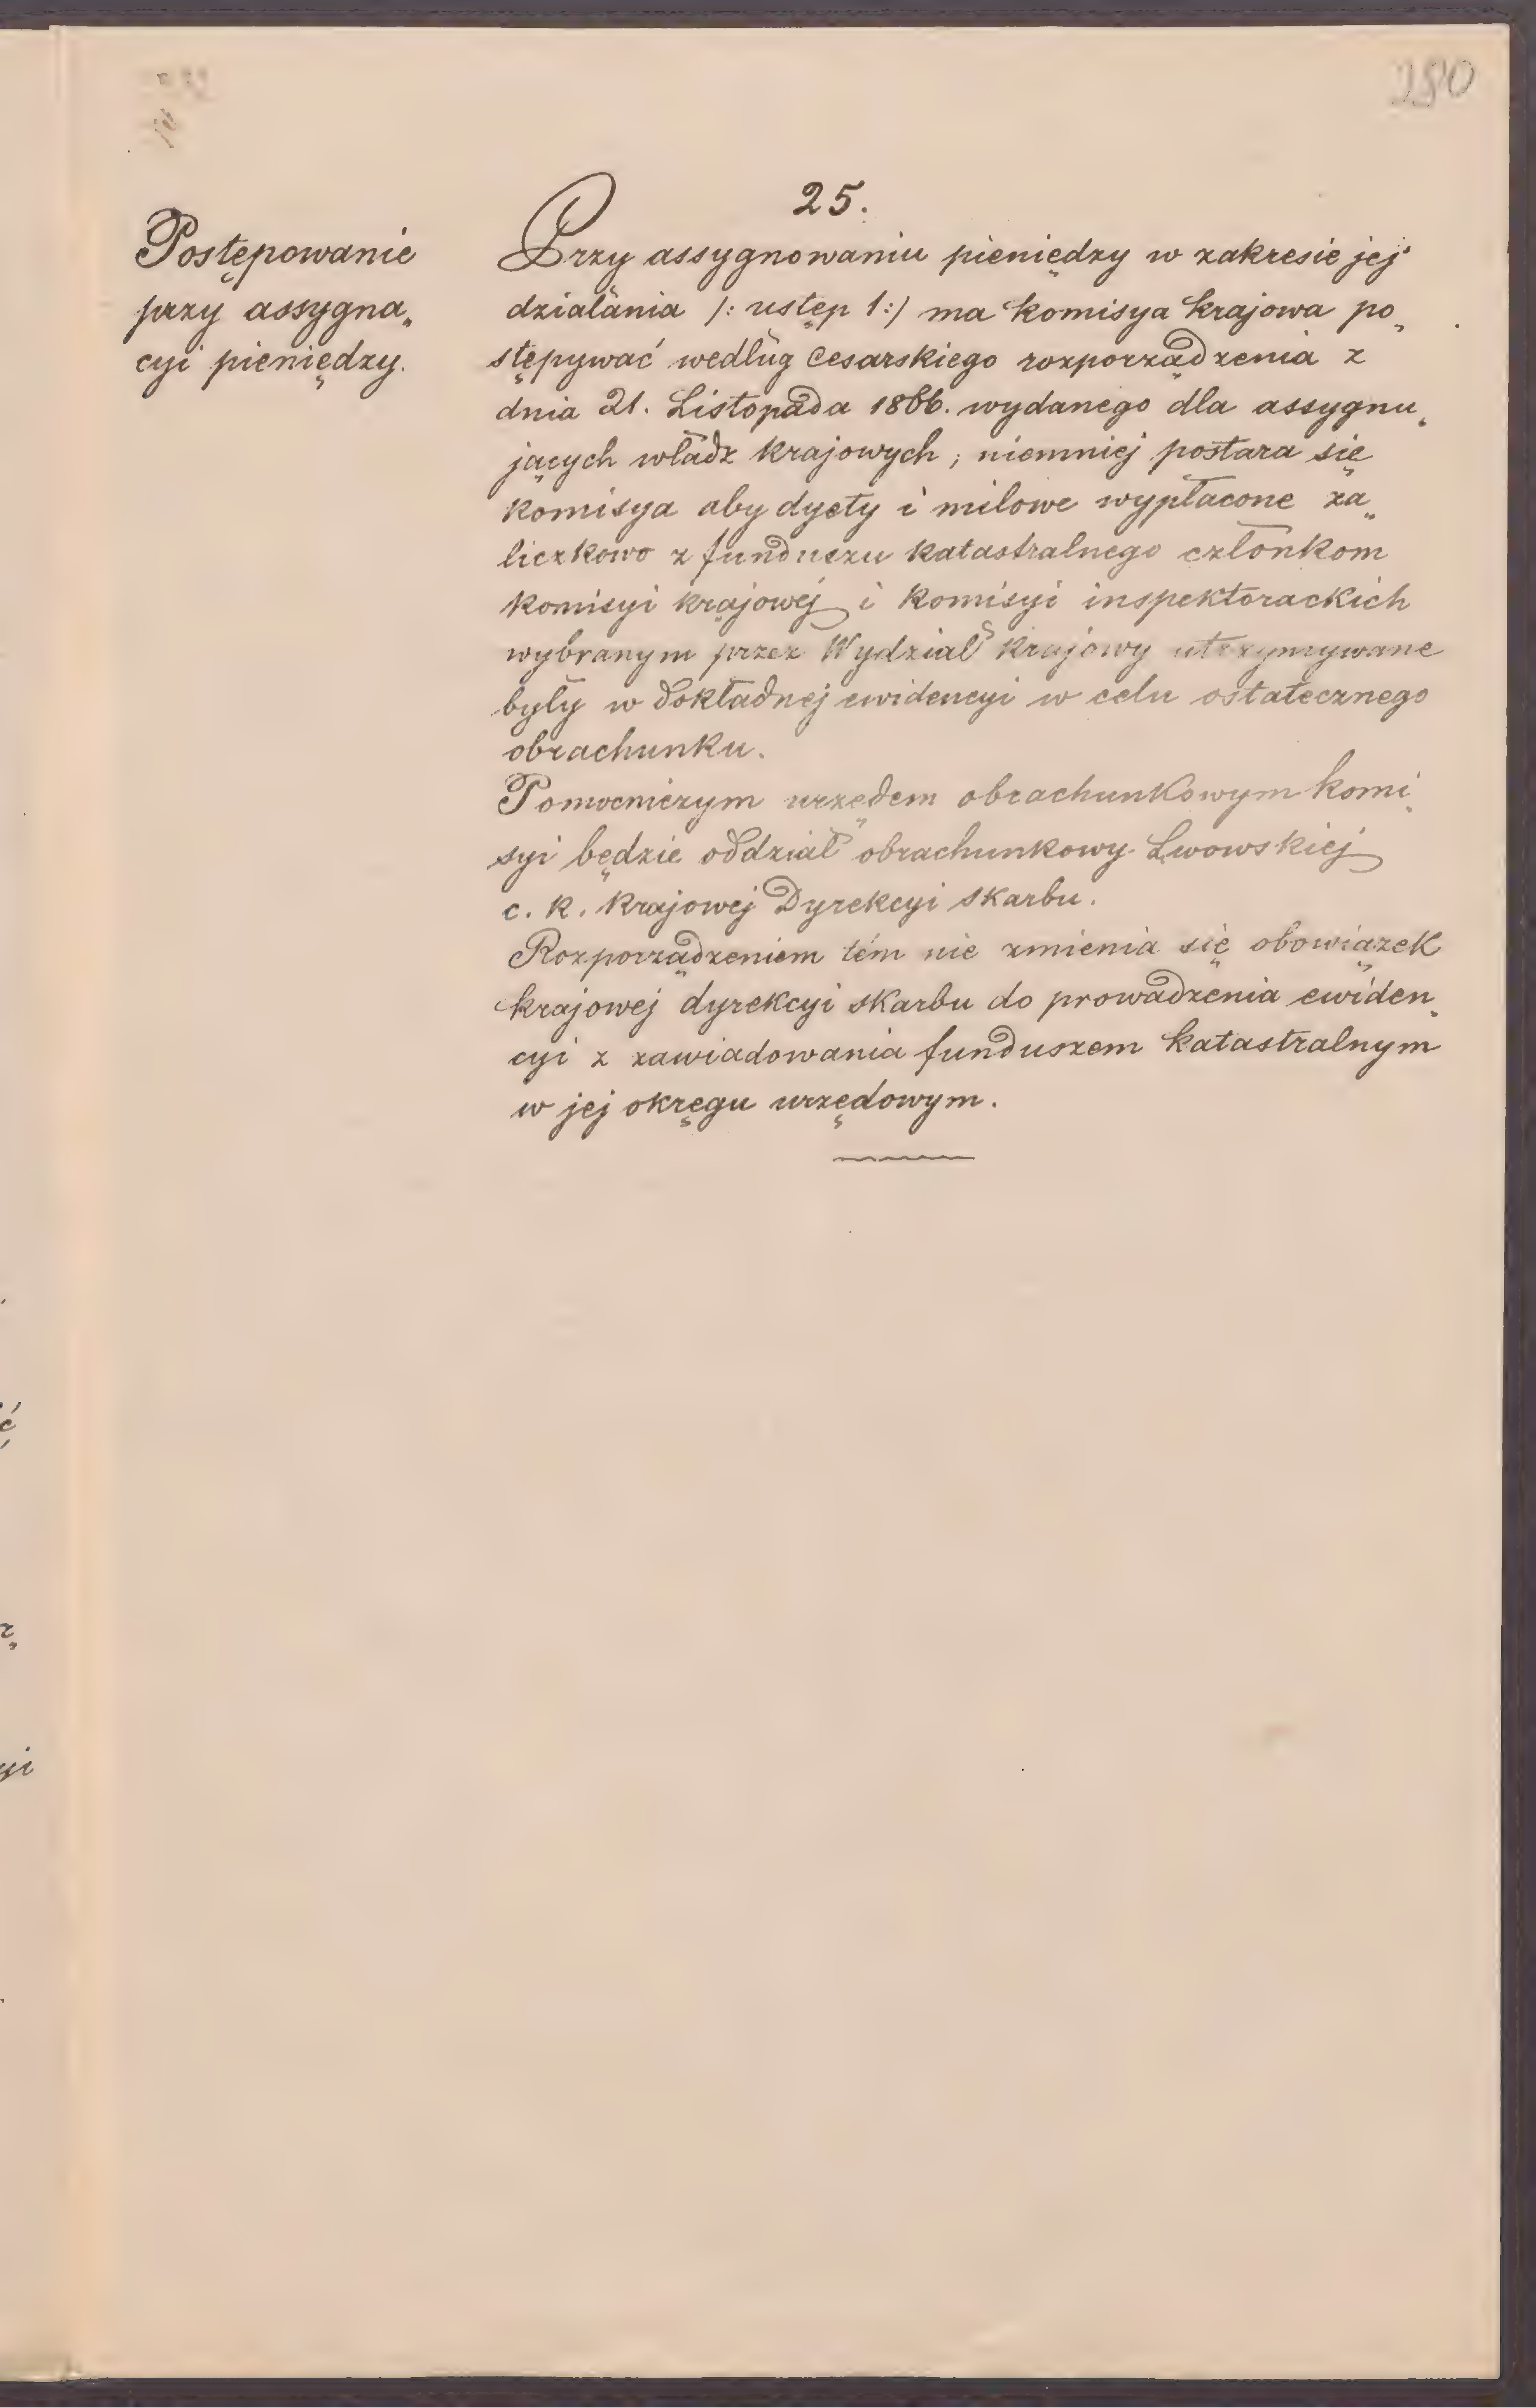 280
25.
Postępowanie
przy assygna„
cyi pieniędzy.
Przy assygnowaniu pieniędzy w zakresie jej
działania /: ustęp 1:/ ma komisya krajowa po„
stępywać według Cesarskiego rozporządzenia z
dnia 21. Listopada 1866. wydanego dla assygnu„
jących władz krajowych, niemniej postara się
komisya aby dyety i milowe wypłacone za„
liczkowo z funduszu katastralnego członkom
komisyi krajowej i komisyi inspektorackich
wybranym przez Wydział krajowy utrzymywane
były w dokładnej ewidencyi w celu ostatecznego
obrachunku.
Pomocniczym urzędem obrachunkowym komi„
syi będzie oddział obrachunkowy Lwowskiej
c. k. krajowej Dyrekcyi skarbu.
Rozporządzeniem tém nie zmienia się obowiązek
krajowej dyrekcyi skarbu do prowadzenia ewiden„
cyi z zawiadowania funduszem katastralnym
w jej okręgu urzędowym.